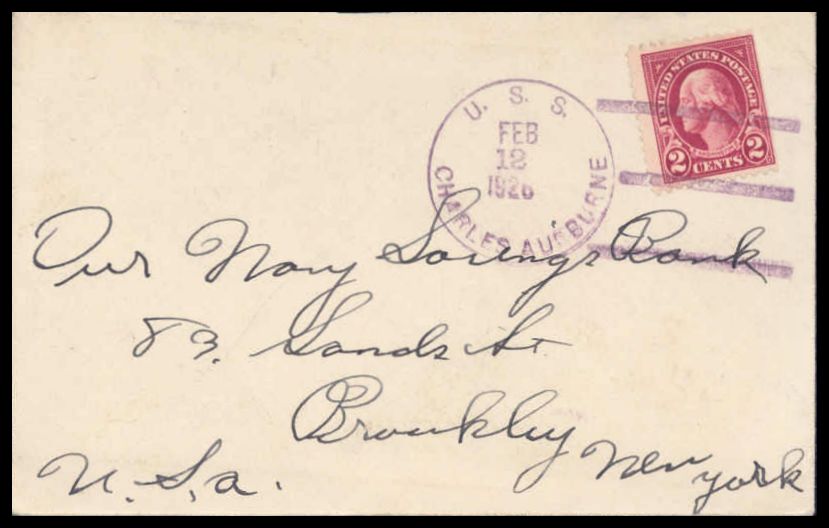 U. S. S.
FEB
12
1926
CHARLES AUSBURNE
UNITED STATES POSTAGE
2 CENTS 2
Our Navy Savings Bank
83. Sands St.
Brooklyn New York
U. S. a.